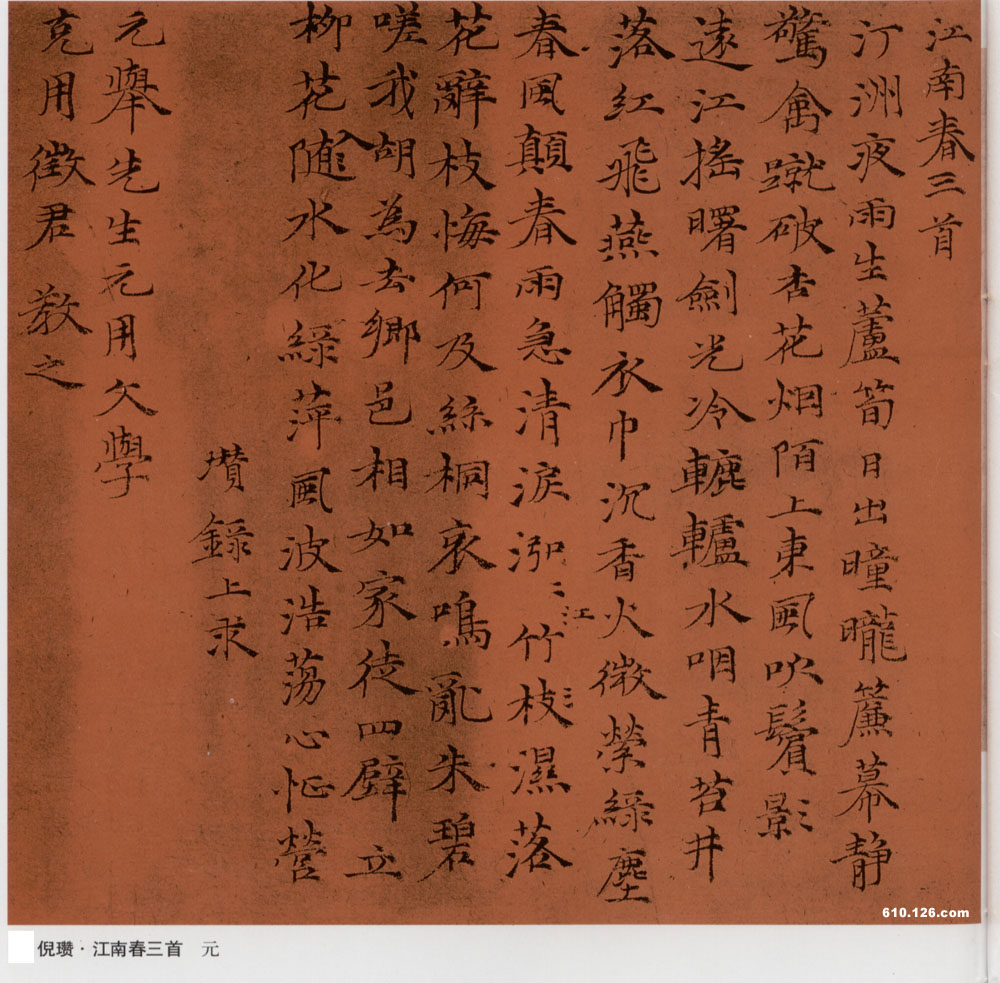 江南春三首
汀洲夜雨生蘆筍日出曈曨簾幕静
驚禽蹴破杏花烟陌上東風吹鬢影
遠江搖曙劍光冷轆轤水咽青苔井
落紅飛燕觸衣巾沉香火微縈綠塵
春風顛春雨急清淚泓〻江竹枝〻濕落
花辭枝悔何及絲桐哀鳴亂朱碧
嗟我胡為去鄉邑相如家徒四壁立
柳花入隨水化綠萍風波浩蕩心怔營
瓚錄上求
元舉先生元用文學
克用徵君教之
610.126.com
倪瓒·江南春三首 元